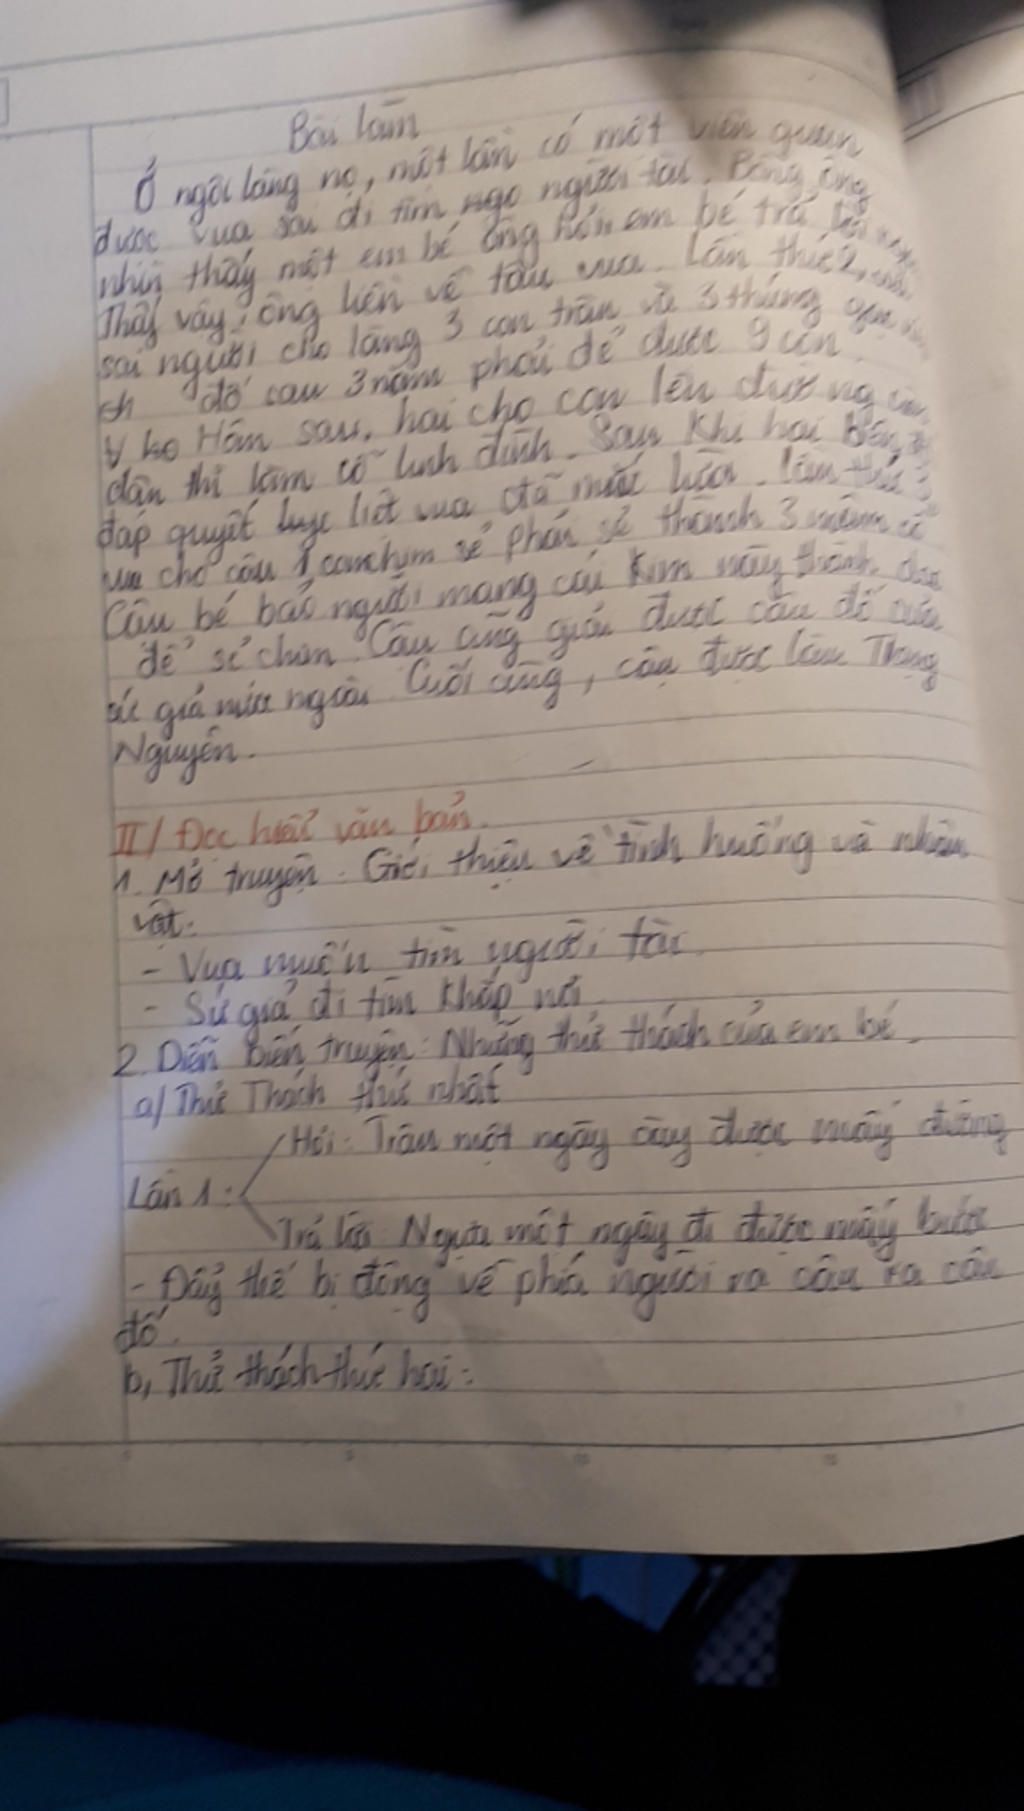 Bài làm
Ở ngôi làng nọ, một lần có một viên quan
được vua sai đi tìm người tài. Bỗng ông
nhìn thấy một em bé ông hỏi, em bé trả lời
Thấy vậy, ông liền về tâu vua. Lần thứ 2,
sai người cho làng 3 con trâu và 3 thúng gạo
đố sau 3 năm phải đẻ được 9 con
Hôm sau, hai cha con lên đường
dân thì làm cỗ linh đình. Sau khi hai bên
đáp quyết luyệt liệt vua đã mắc lừa. Lần thứ 3
vua cho cậu 1 con chim sẻ phải sẻ thành 3 mâm cỗ
Cậu bé bảo người mang cái kim này thành dao
để sẻ chim. Cậu cũng giải được câu đố của
sứ giả nước ngoài. Cuối cùng, cậu được làm Trạng
Nguyên.
II/ Đọc hiểu văn bản.
1. Mở truyện: Giới thiệu về tình huống và nhân
vật:
- Vua muốn tìm người tài.
- Sứ giả đi tìm khắp nơi.
2. Diễn biến truyện: Những thử thách của em bé.
a/ Thử Thách thứ nhất
Hỏi: Trâu một ngày cày được mấy đường
Lần 1:
Trả lời: Ngựa một ngày đi được mấy bước
- Đẩy thế bị động về phía người ra câu ra câu
đố.
b, Thử thách thứ hai: